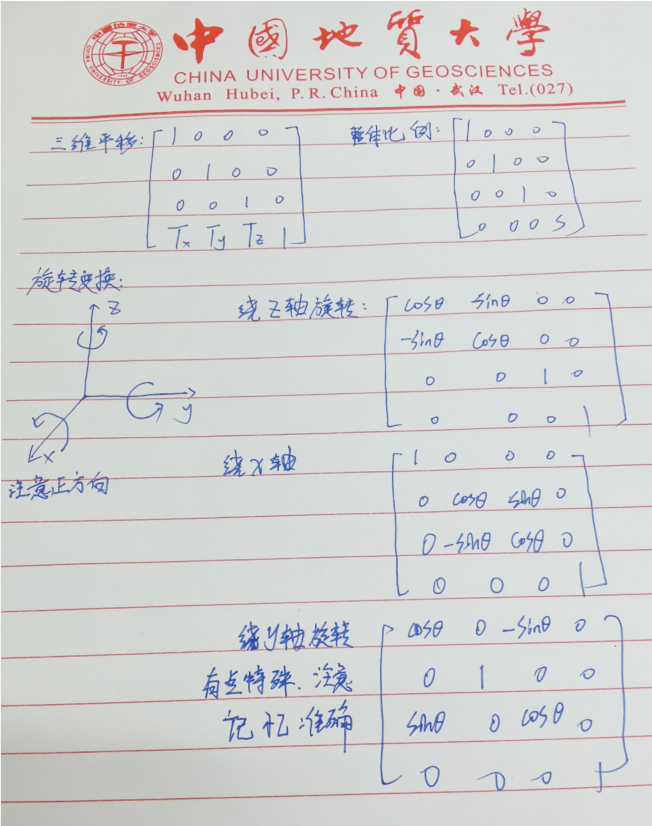 中國地質大學
CHINA UNIVERSITY OF GEOSCIENCES
Wuhan Hubei, P.R.China 中国·武汉 Tel.(027)
三维平移: 整体比例:
1 0 0 0
0 1 0 0
0 0 1 0
Tx Ty Tz 1
1 0 0 0
0 1 0 0
0 0 1 0
0 0 0 S
旋转变换:
z
y
x
注意正方向
绕Z轴旋转:
cosθ sinθ 0 0
-sinθ cosθ 0 0
0 0 1 0
0 0 0 1
绕X轴
1 0 0 0
0 cosθ sinθ 0
0 -sinθ cosθ 0
0 0 0 1
绕y轴旋转
有点特殊、注意
记忆准确
cosθ 0 -sinθ 0
0 1 0 0
sinθ 0 cosθ 0
0 0 0 1